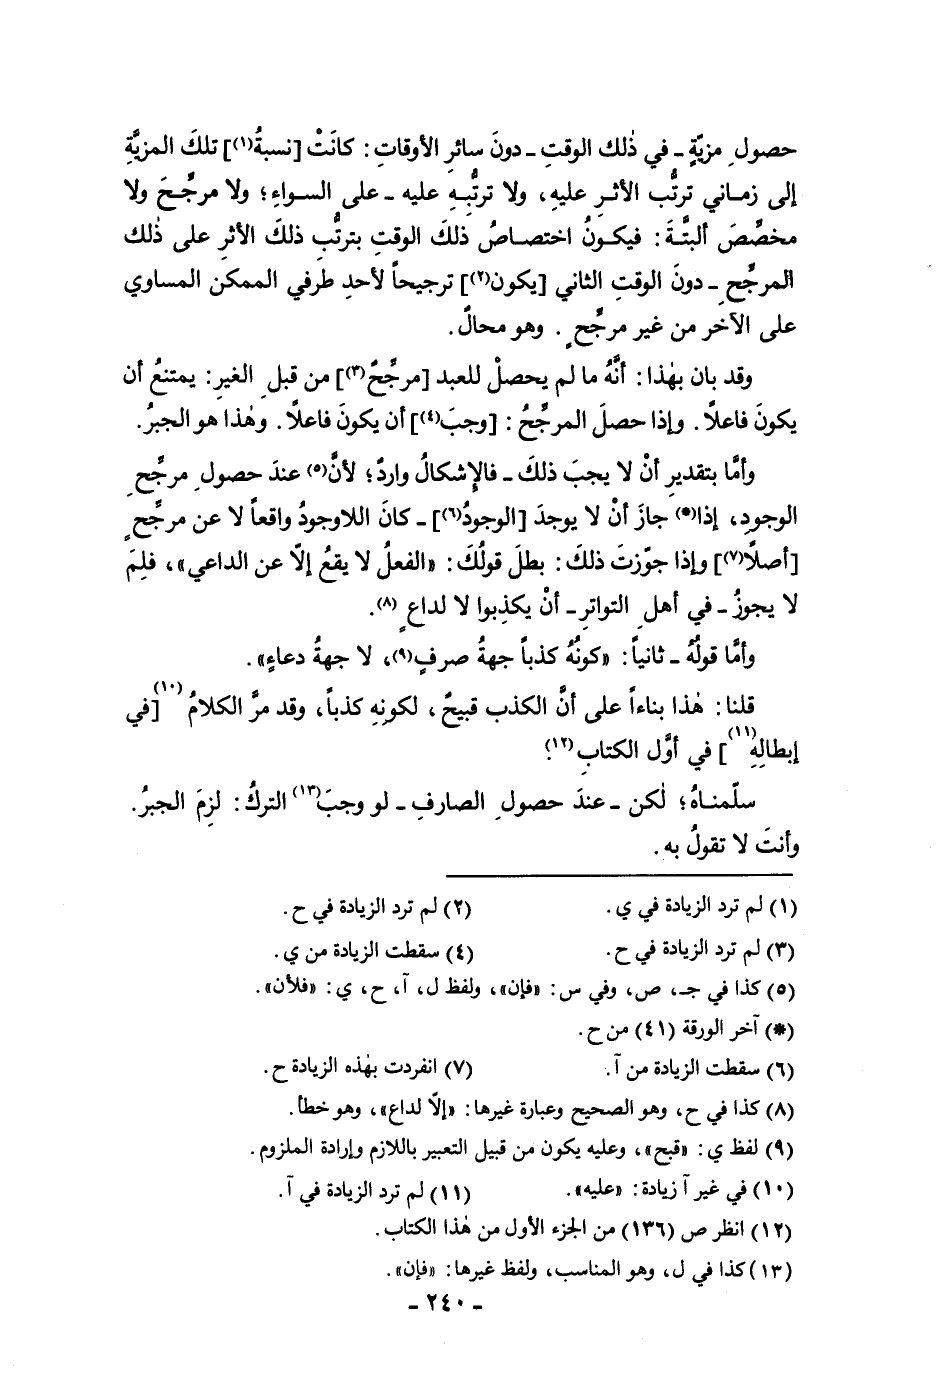 حصولِ مزيّةٍ ـ في ذٰلك الوقتِ ـ دونَ سائرِ الأوقاتِ : كانَتْ [نسبةُ(١)] تلكَ المزيَّةِ
إلى زماني ترتُّبِ الأثرِ عليهِ، ولا ترتُّبِهِ عليه ـ على السواءِ؛ ولا مرجِّحَ ولا
مخصِّصَ ألبتَّةَ : فيكونُ اختصاصُ ذلكَ الوقتِ بترتُّبِ ذلكَ الأثرِ على ذٰلك
المرجِّحِ ـ دونَ الوقتِ الثاني [يكون(٢)] ترجيحاً لأحدِ طرفي الممكن المساوي
على الآخر من غير مرجِّحٍ . وهو محالٌ.
وقد بان بهٰذا : أنَّهُ ما لم يحصلْ للعبد [مرجِّحٌ(٣)] من قبلِ الغيرِ : يمتنعُ أن
يكونَ فاعلًا . وإذا حصلَ المرجِّحُ : [وجبَ(٤)] أن يكونَ فاعلًا . وهٰذا هو الجبرُ.
وأمَّا بتقديرِ أنْ لا يجبَ ذلكَ ـ فالإشكالُ واردٌ؛ لأنَّ(٥) عندَ حصولِ مرجِّحِ
الوجودِ، إذا(*) جازَ أنْ لا يوجدَ [الوجودُ(٦)] ـ كانَ اللاوجودُ واقعاً لا عن مرجِّحٍ
[أصلًا(٧)] وإذا جوّزتَ ذلكَ : بطلَ قولُكَ : «الفعلُ لا يقعُ إلّا عن الداعي»، فلِمَ
لا يجوزُ ـ في أهلِ التواترِ ـ أنْ يكذِبوا لا لداعٍ (٨).
وأمَّا قولُهُ ـ ثانياً : «كونُهُ كذباً جهةُ صرفٍ(٩)، لا جهةُ دعاءٍ».
قلنا : هٰذا بناءاً على أنَّ الكذب قبيحٌ، لكونِهِ كذباً، وقد مرَّ الكلامُ(١٠) [في
إبطالِهِ(١١)] في أوَّل الكتابِ(١٢).
سلّمناهُ؛ لٰكن ـ عندَ حصولِ الصارفِ ـ لو وجبَ(١٣) التركُ : لزِمَ الجبرُ.
وأنتَ لا تقولُ به .
(١) لم ترد الزيادة في ي . (٢) لم ترد الزيادة في ح .
(٣) لم ترد الزيادة في ح. (٤) سقطت الزيادة من ي .
(٥) كذا في جـ، ص، وفي س : «فإن»، ولفظ ل، آ، ح، ي : «فلأن».
(*) آخر الورقة (٤١) من ح .
(٦) سقطت الزيادة من آ. (٧) انفردت بهٰذه الزيادة ح .
(٨) كذا في ح، وهو الصحيح وعبارة غيرها : «إلّا لداع»، وهو خطأ.
(٩) لفظ ي : «قبح»، وعليه يكون من قبيل التعبير باللازم وإرادة الملزوم .
(١٠) في غير آ زيادة : «عليه». (١١) لم ترد الزيادة في آ.
(١٢) انظر ص (١٣٦) من الجزء الأول من هٰذا الكتاب .
(١٣) كذا في ل، وهو المناسب، ولفظ غيرها : «فإن».
ـ ٢٤٠ ـ